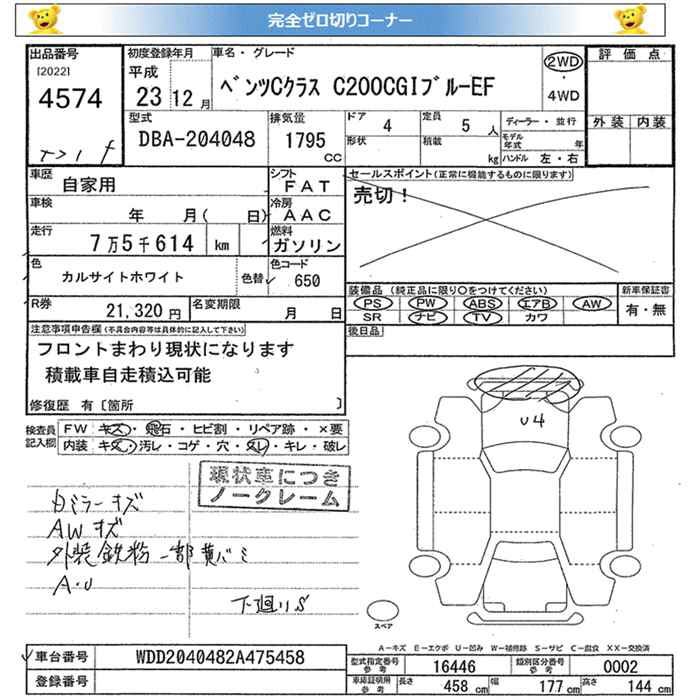 完全ゼロ切りコーナー
出品番号 初度登録年月 車名・グレード 評価点
[2022] 平成
4574 23 12月 ベンツCクラス C200CGIブルーEF 2WD・4WD
型式 排気量 ドア 定員 ディーラー・並行 外装 内装
DBA-204048 1795 CC 4 5人 モデル年式 年
形状 積載 kg ハンドル 左・右
車歴 シフト セールスポイント(正常に機能するものに限ります)
自家用 FAT 売切!
車検 冷房
年 月( 日) AAC
走行 燃料
7万5千614 km ガソリン
色 色コード
カルサイトホワイト 色替 650
装備品 (純正品に限り○をつけてください) 新車保証書
R券 21,320円 名変期限 月 日
PS PW ABS エアB AW 有・無
SR ナビ TV カワ
注意事項申告欄(不具合内容等は具体的に記入して下さい) 後日品
フロントまわり現状になります
積載車自走積込可能
修復歴 有〔箇所 〕
検査員記入欄 FW キズ・飛石・ヒビ割・リペア跡・×要
内装 キズ・汚レ・コゲ・穴・スレ・キレ・破レ
現状車につき
ノークレーム
U4
カミラーキズ
AWキズ
外装鉄粉 一部黄バミ
A・U
下廻りS
スペア
A-キズ E-エクボ U-凹み W-補修跡 S-サビ C-腐食 XX-交換済
車台番号 WDD2040482A475458 型式指定番号参考 16446 類別区分番号参考 0002
登録番号 車庫証明用参考 長さ 458cm 幅 177cm 高さ 144cm